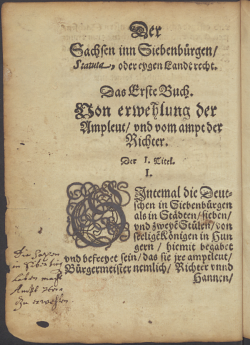 Der
Sachsen inn Siebenbürgen/
Statuta, oder eygen Landtrecht.
Das Erste Buch.
Von erwehlung der
Ampleut/ vnd vom ampt der
Richter.
Der I. Titel.
I.
SIntemal die Deut-
schen in Siebenbürgen
als in Städten/sieben/
vnd zweyē Stülen/ von
seligē Königen in Hun
gern / hiemit begabet
vnd befreyet sein/das sie jre ampleut/
Bürgermeister nemlich/ Richter vnnd
Hannen/